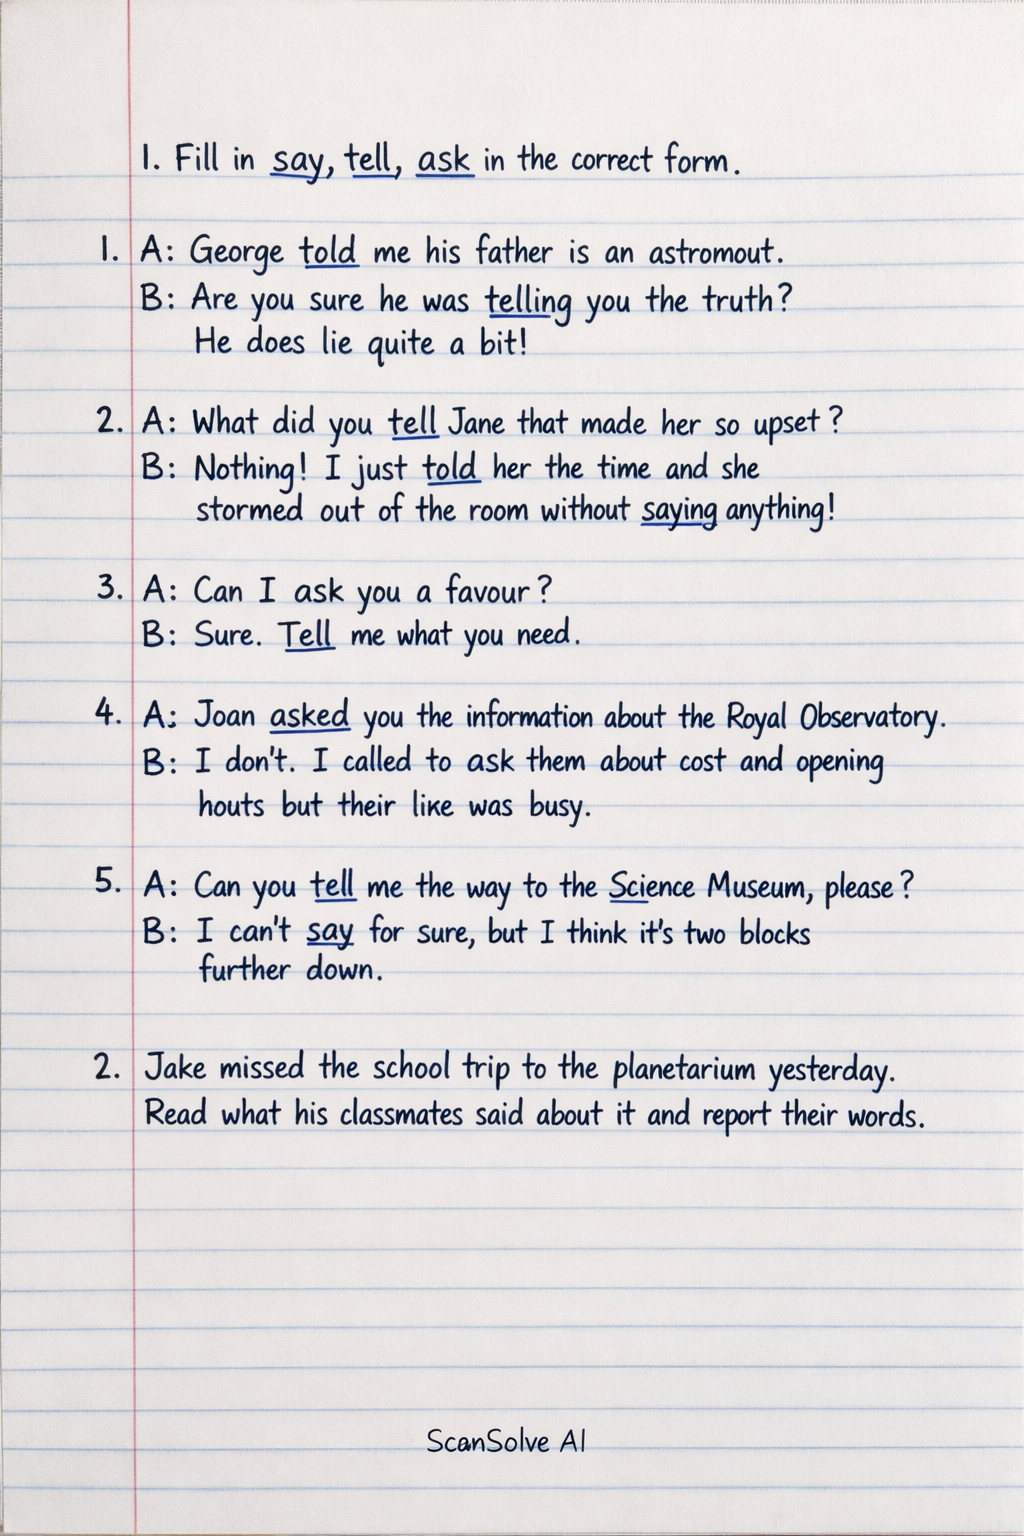 1. Fill in say, tell, ask in the correct form.
1. A: George told me his father is an astromout.
B: Are you sure he was telling you the truth?
He does lie quite a bit!
2. A: What did you tell Jane that made her so upset?
B: Nothing! I just told her the time and she
stormed out of the room without saying anything!
3. A: Can I ask you a favour?
B: Sure. Tell me what you need.
4. A: Joan asked you the information about the Royal Observatory.
B: I don't. I called to ask them about cost and opening
houts but their like was busy.
5. A: Can you tell me the way to the Science Museum, please?
B: I can't say for sure, but I think it's two blocks
further down.
2. Jake missed the school trip to the planetarium yesterday.
Read what his classmates said about it and report their words.
ScanSolve AI